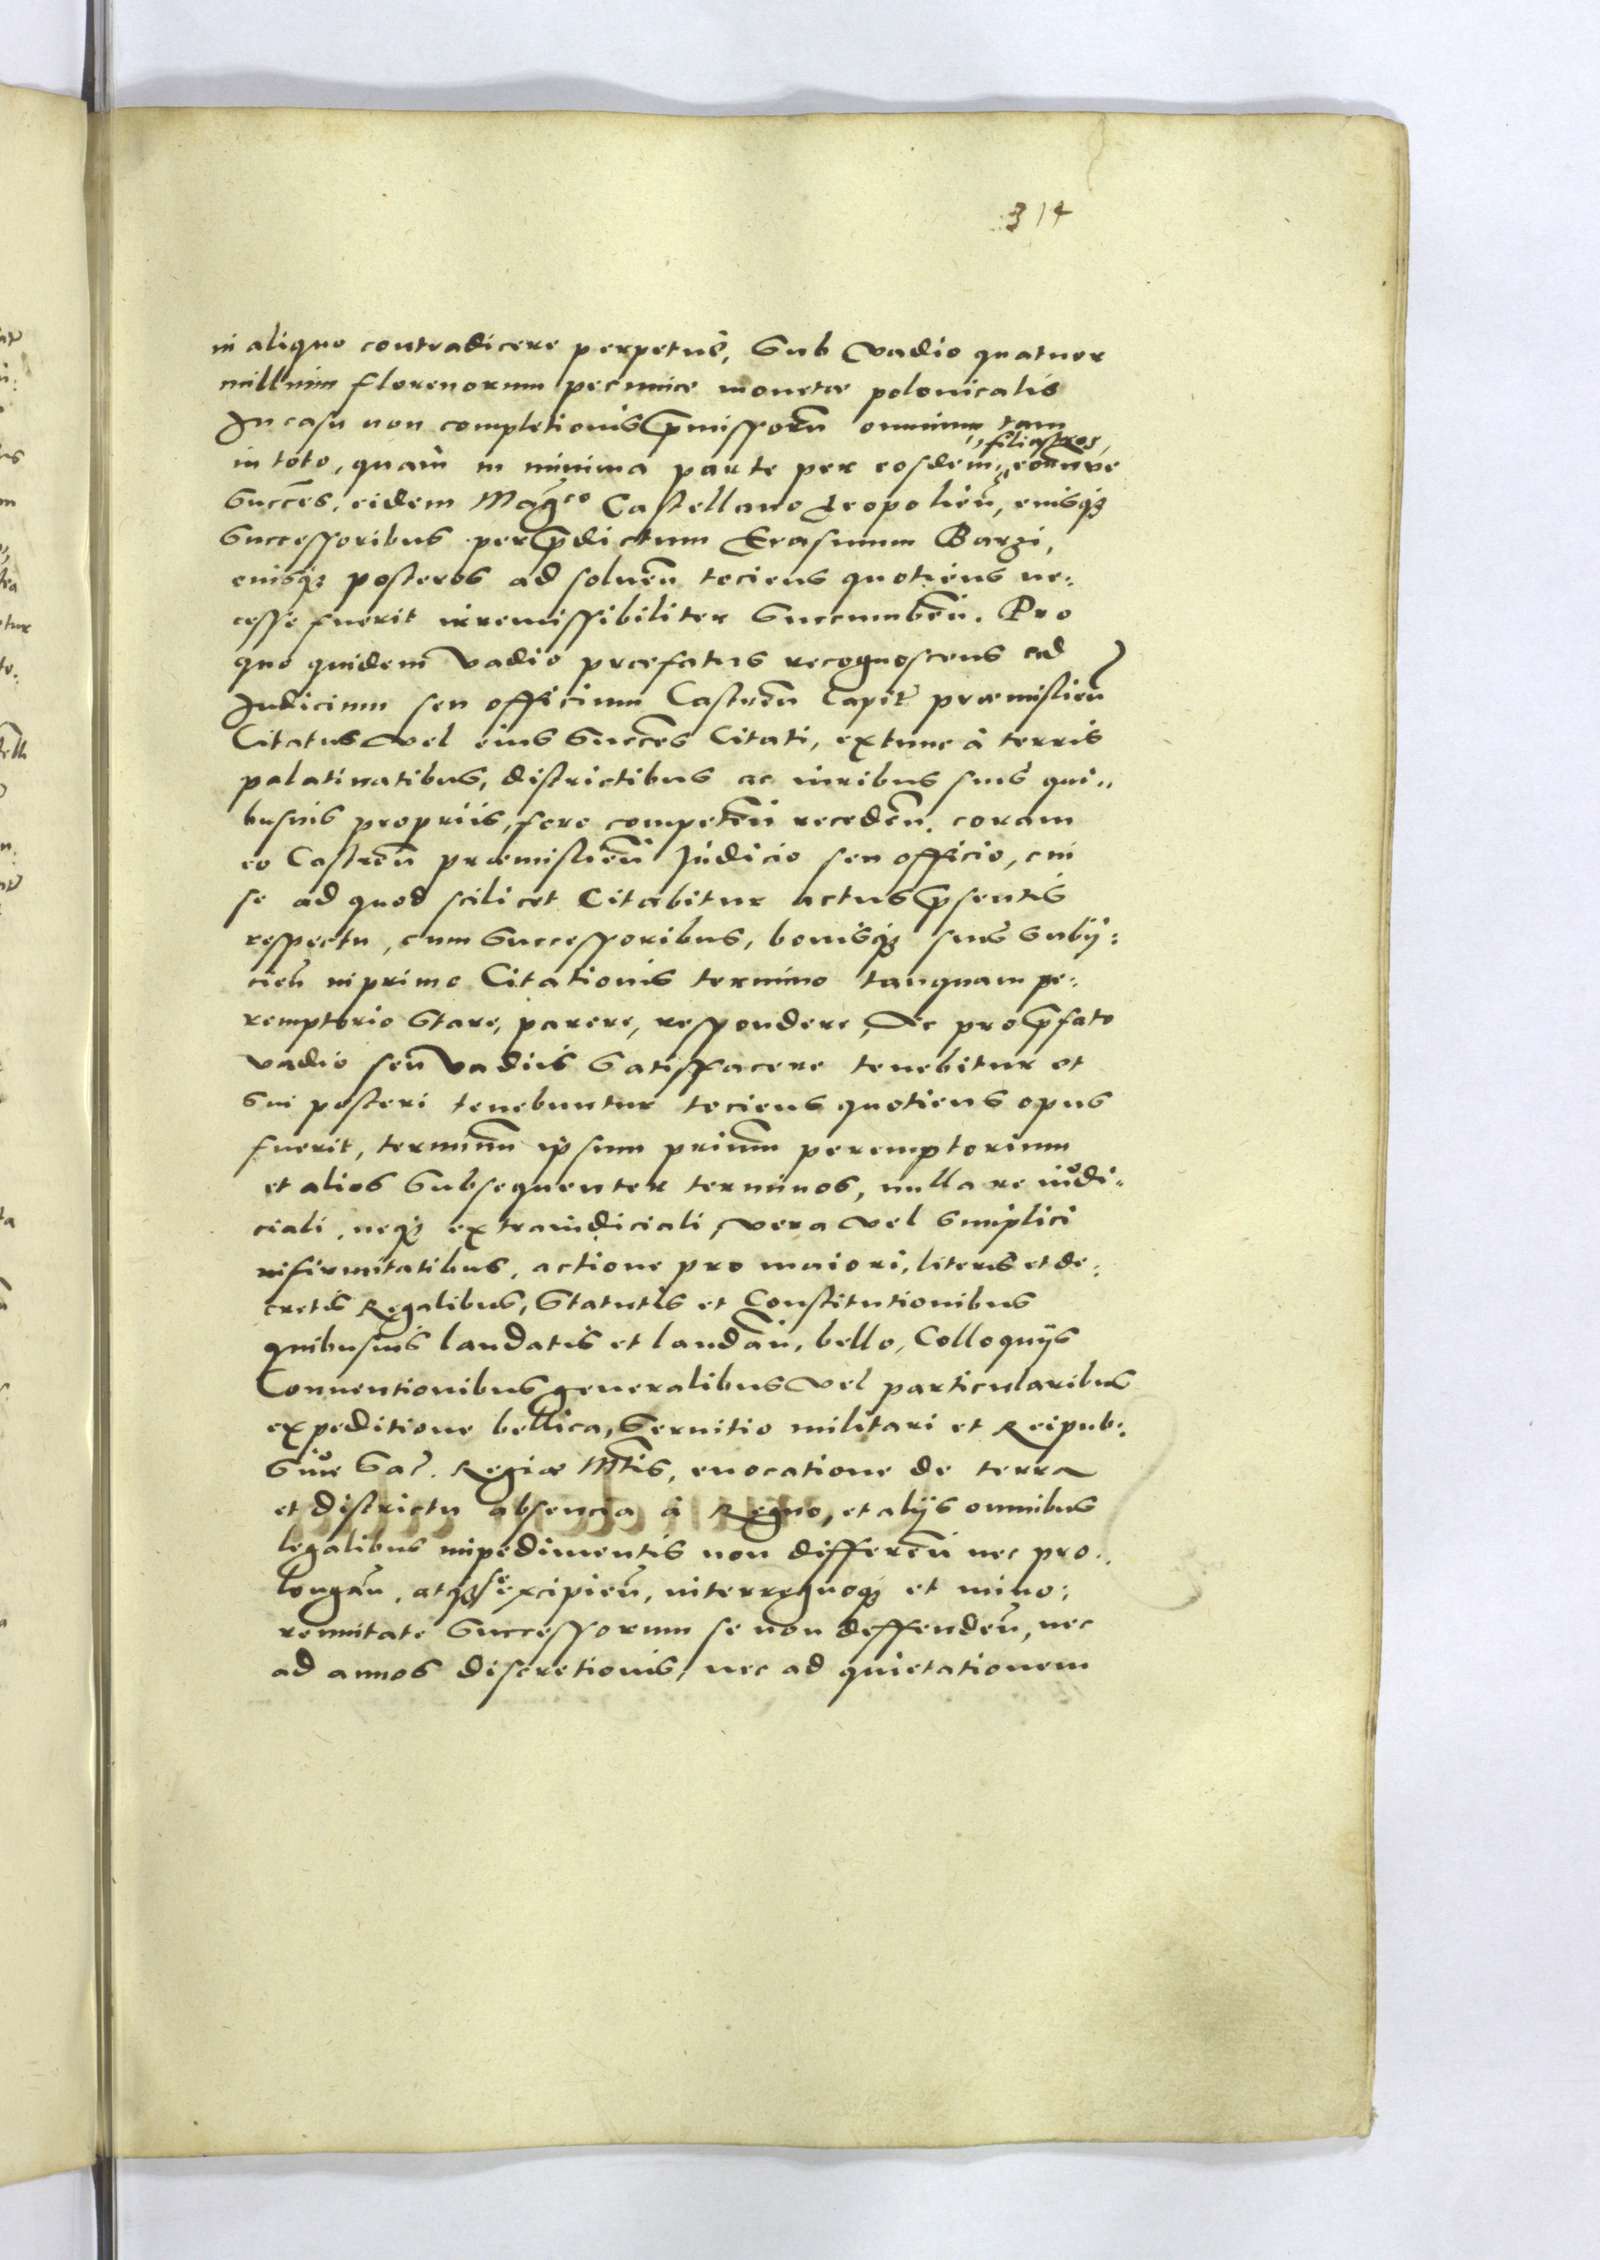 314
in aliquo contradicere perpetuè, Sub vadio quatuor
millium florenorum pecuniæ monetæ polonicalis
In casu non completionis p̄missorū omnium, tam
filiastros,
in toto, quàm in minima parte per eosdem, eorūve
Succēs, eidem Mag̃co Castellano Leopolień, eiusq₃
Successoribus per p̄dictum Erasmum Barzi,
eiusq₃ posteros ad solueń tociens quotiens ne:
cesse fuerit irremissibiliter Succumbeń. Pro
quo quidem vadio præfatus recognoscens ad
Iudicium seu officium Castreń Capitł præmislień
Citatus vel eius Succēs Citati, extunc à terris
palatinatibus, districtibus ac iuribus suis qui„
busuis propriis, foro competeń recedeń, coram
eo Castreń præmislień Iudicio seu officio, cui
se ad quod scilicet Citabitur actus p̄sentis
respectu, cum Successoribus, bonisq₃ suis subij:
cień in primo Citationis termino tanquam pe:
remptorio Stare, parere, respondere, Ac pro p̄fato
vadio seu vadiis Satisfacere tenebitur et
Sui posteri tenebuntur tociens quotiens opus
fuerit, terminū ipsum primū peremptorium
et alios Subsequenter terminos, nulla re iudi:
ciali, neq₃ extraiudiciali, vera vel Simplici
infirmitatibus, actione pro maiori, literis et de:
cretis Regalibus, Statutis et Constitutionibus
quibusuis laudatis et laudań, bello, Colloquijs
Conuentionibus generalibus vel particularibus
expeditione bellica, Seruitio militari et Reipub:
Siue Sac. Regiæ Mtis, euocatione de terra
et districtu absencia à Regno, et alijs omnibus
legalibus impedimentis non differeń nec pro:
longań, atq₃ se excipień, interregnoq₃ et mino:
rennitate Successorum se non deffendeń, nec
ad annos discretionis, nec ad quietationem